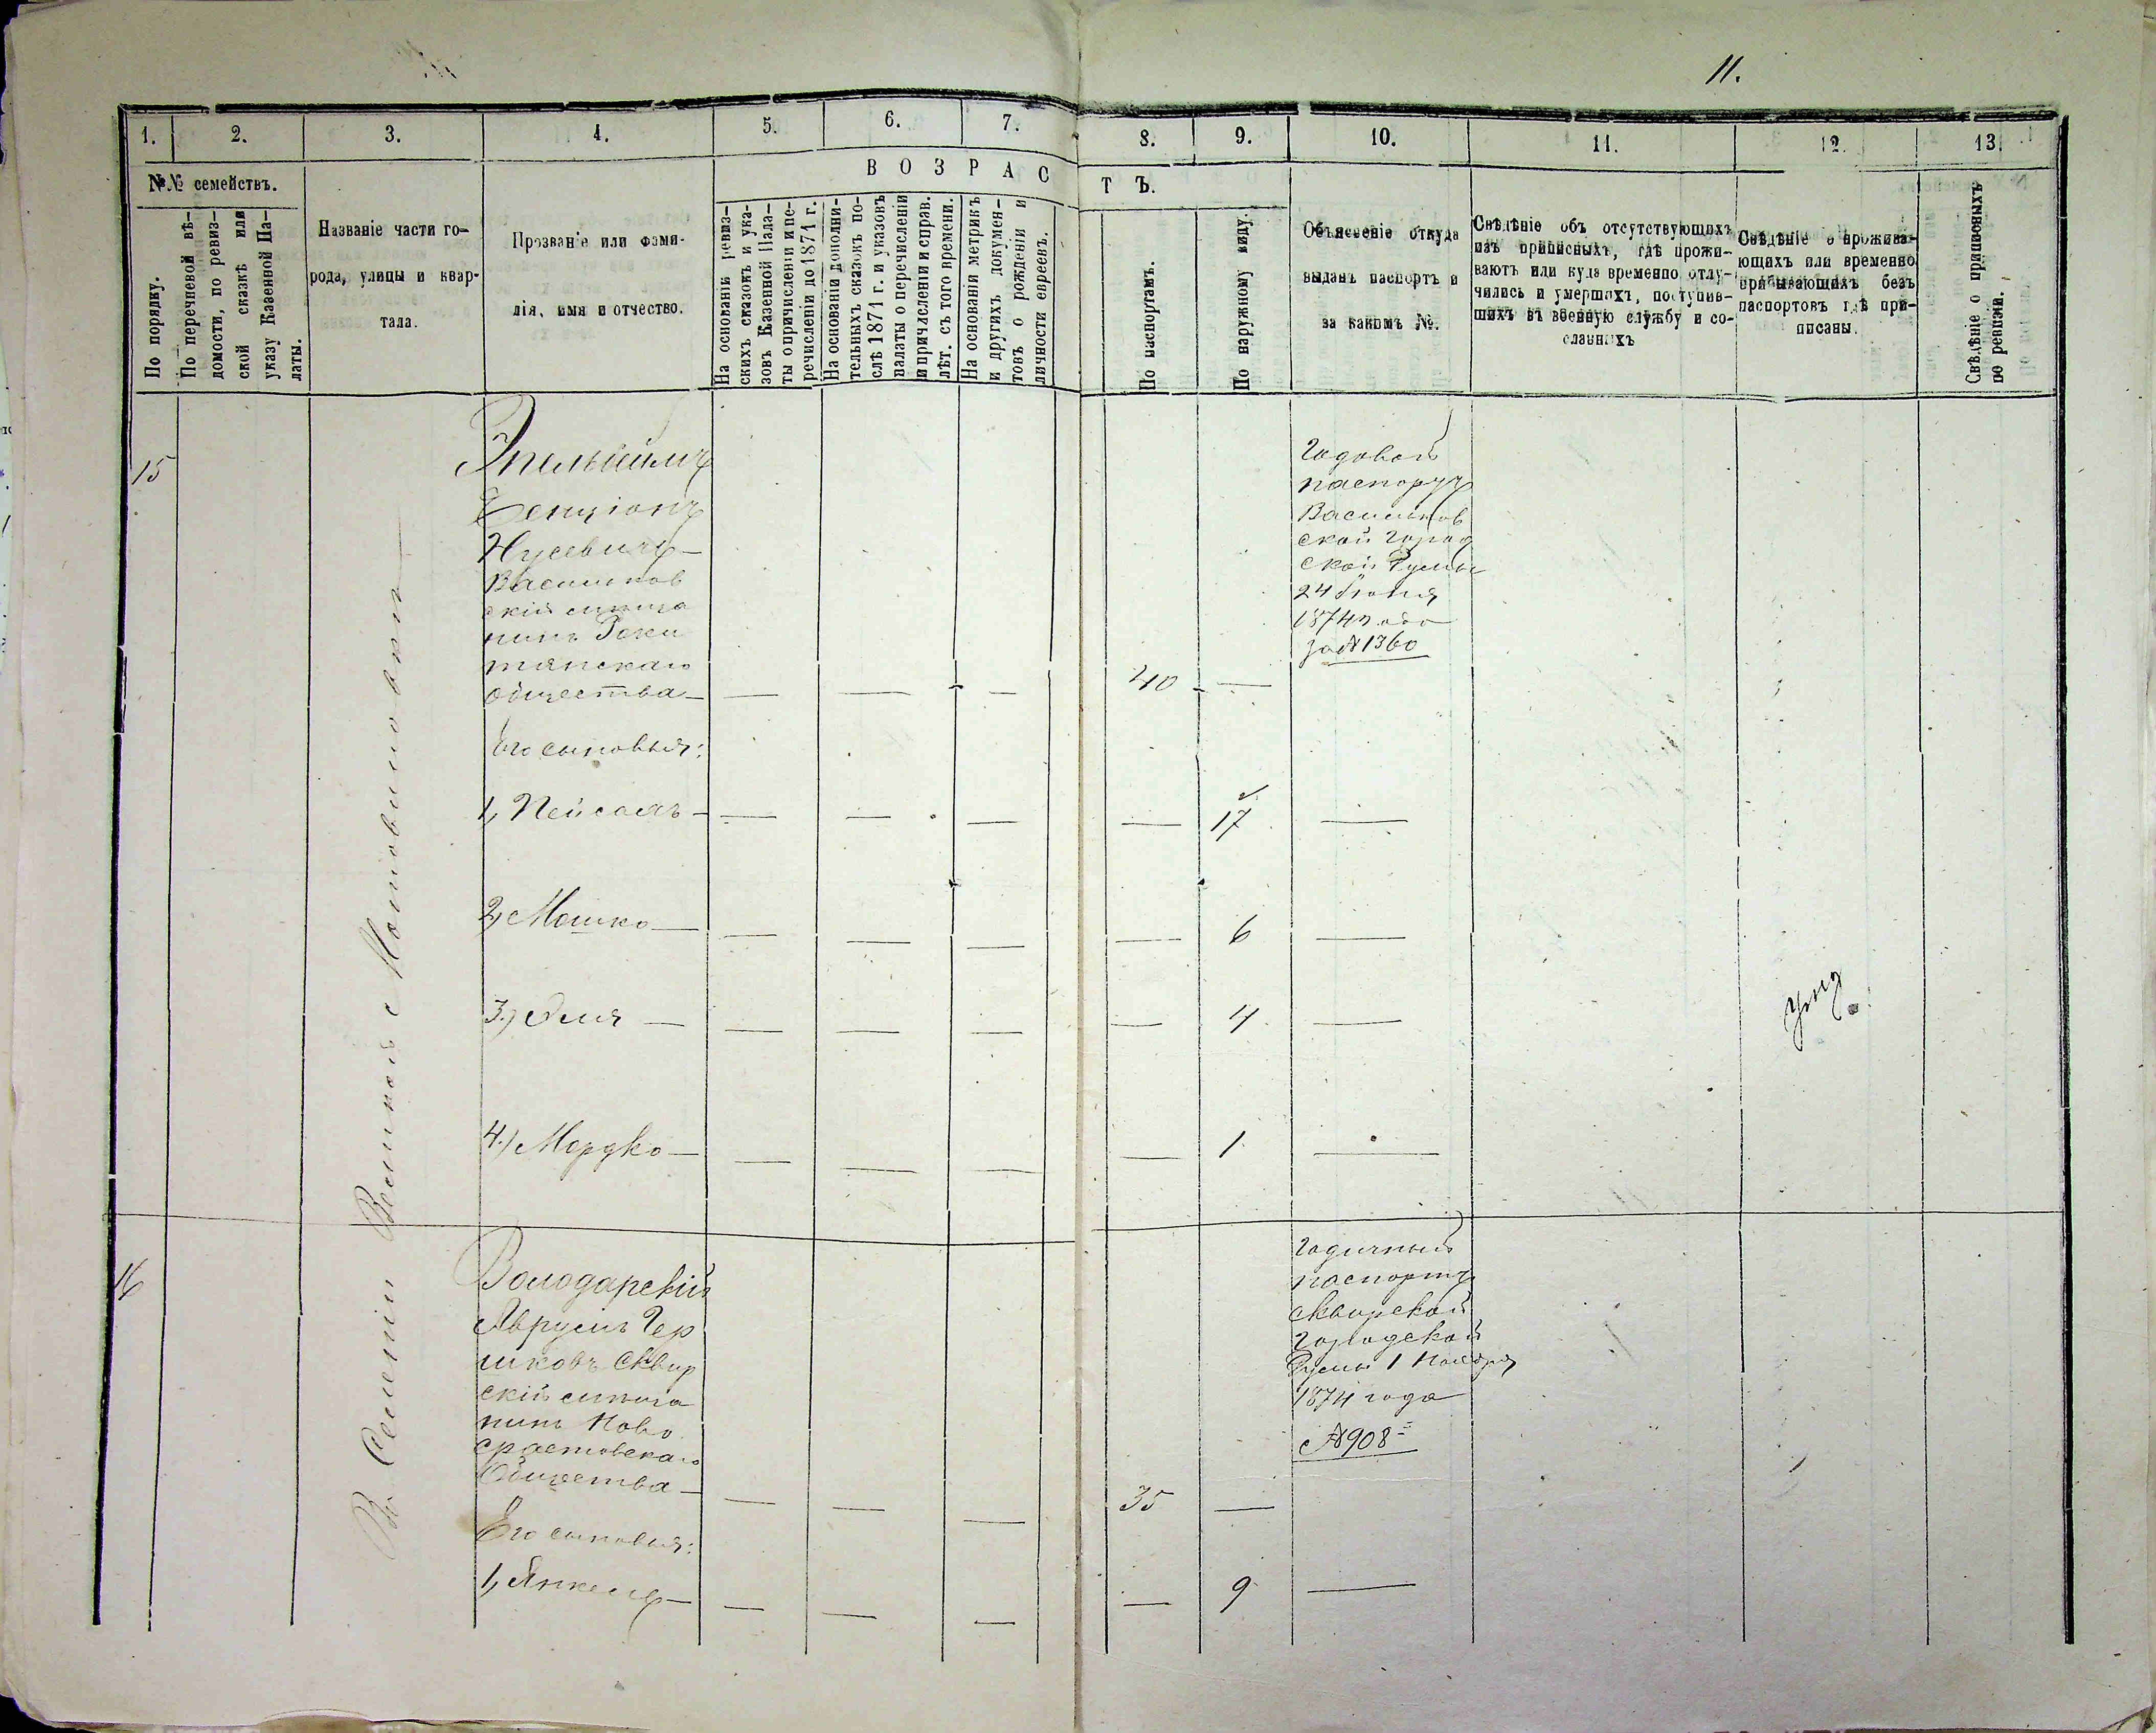 11.
1.
2.
3.
4.
5.
6.
7.
8.
9.
10.
11.
12.
13.
№№ семействъ.
По порядку.
По перечневой вѣ-
домости, по ревиз-
ской сказкѣ или
указу Казенной Па-
латы.
Названіе части го-
рода, улицы и квар-
тала.
Прозваніе или фами-
лія, имя и отчество.
ВОЗРАСТЪ.
На основаніи ревиз-
скихъ сказокъ и ука-
зовъ Казенной Пала-
ты о причисленіи и пе-
речисленіи до 1871 г.
На основаніи дополни-
тельныхъ сказокъ по-
слѣ 1871 г. и указовъ
палаты о перечисленіи
и причисленіи и справ.
лѣт. съ того времени.
На основаніи метрикъ
и другихъ докумен-
товъ о рожденіи и
личности евреевъ.
По паспортамъ.
По наружному виду.
Объясненіе откуда
выданъ паспортъ и
за какимъ №.
Свѣдѣніе объ отсутствующихъ
изъ приписныхъ, гдѣ прожи-
ваютъ или куда временно отлу-
чились и умершихъ, поступив-
шихъ въ военную службу и со-
сланныхъ
Свѣдѣніе о прожива-
ющихъ или временно
пребывающихъ безъ
паспортовъ гдѣ при-
писаны.
Свѣдѣніе о приписныхъ
по ревизіи.
15
Бенціонъ
Нусевичъ —
Васильков
скій мѣща
нинъ Раки
тянскаго
общества —
40 —
Годовой
паспортъ
Васильков
ской город
ской Думы
24 Іюня
1874 года
за № 1360
Его сыновья:
1, Пейсахъ — 17
2, Мошко — 6
3.) Эля — 4
4.) Мордко — 1
16
Володарскій
Аврумъ Гер
шковъ Сквир
скій мѣща
нинъ Ново
Общества — 35 —
Годичный
паспортъ
Сквирской
городской
Думы 1 Ноября
1874 года
№ 908
Его сыновья:
1, Янкель — 9
Въ Селеніи